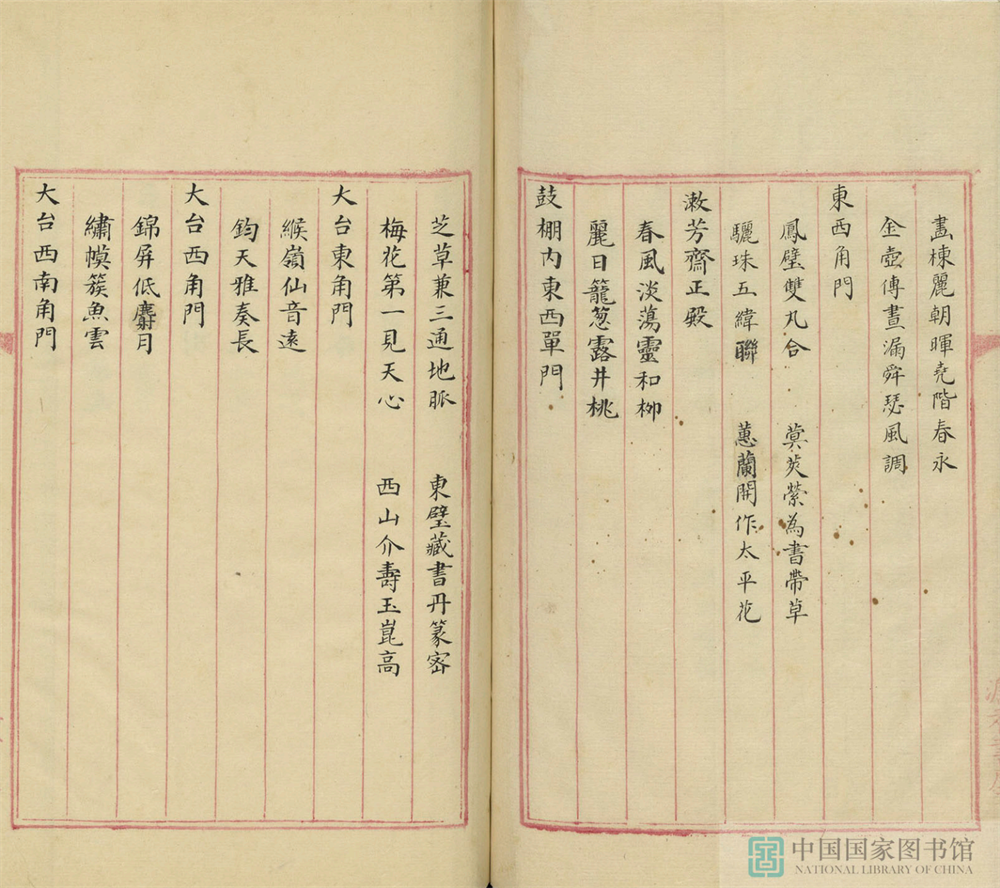 畫棟麗朝暉堯階春永
金壺傳晝漏舜瑟風調
東西角門
鳳璧雙丸合　蓂莢縈為書帶草
驪珠五緯聯　蕙蘭開作太平花
漱芳齋正殿
春風淡蕩靈和柳
麗日籠葱露井桃
鼓棚內東西單門
芝草兼三通地脈　東壁藏書丹篆密
梅花第一見天心　西山介壽玉崑高
大台東角門
緱嶺仙音遠
鈞天雅奏長
大台西角門
錦屏低麝月
繡幙簇魚雲
大台西南角門
中国国家图书馆
NATIONAL LIBRARY OF CHINA